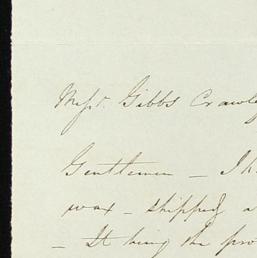 Messrs. Gibbs Crawley
Gentlemen – I h
wax – shipped a
– It being the pro